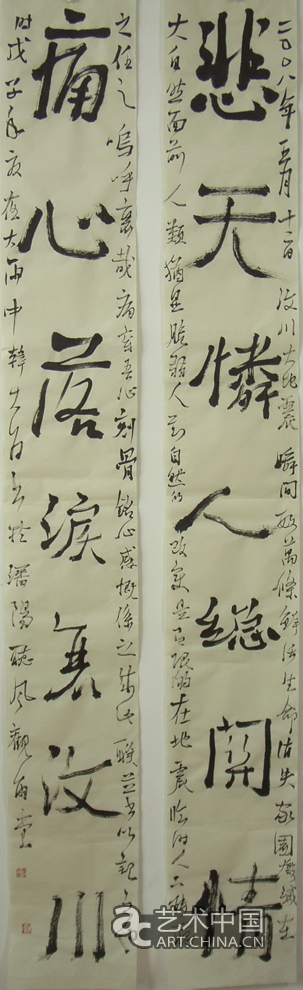 二〇〇八年五月十二日汶川大地震瞬間數萬條鮮活生命消失家園毀滅在
悲天憐人總關情
大自然面前人類猶是脆弱人對自然的改變是有限的在地震臨時人
之任之嗚呼哀哉痛哉吾心刻骨銘心感慨係之成此聯並書以記
痛心落淚哀汶川
時戊子年夜大雨中韓 書於瀋陽聽風觀雨堂
艺术中国
ART.CHINA.CN